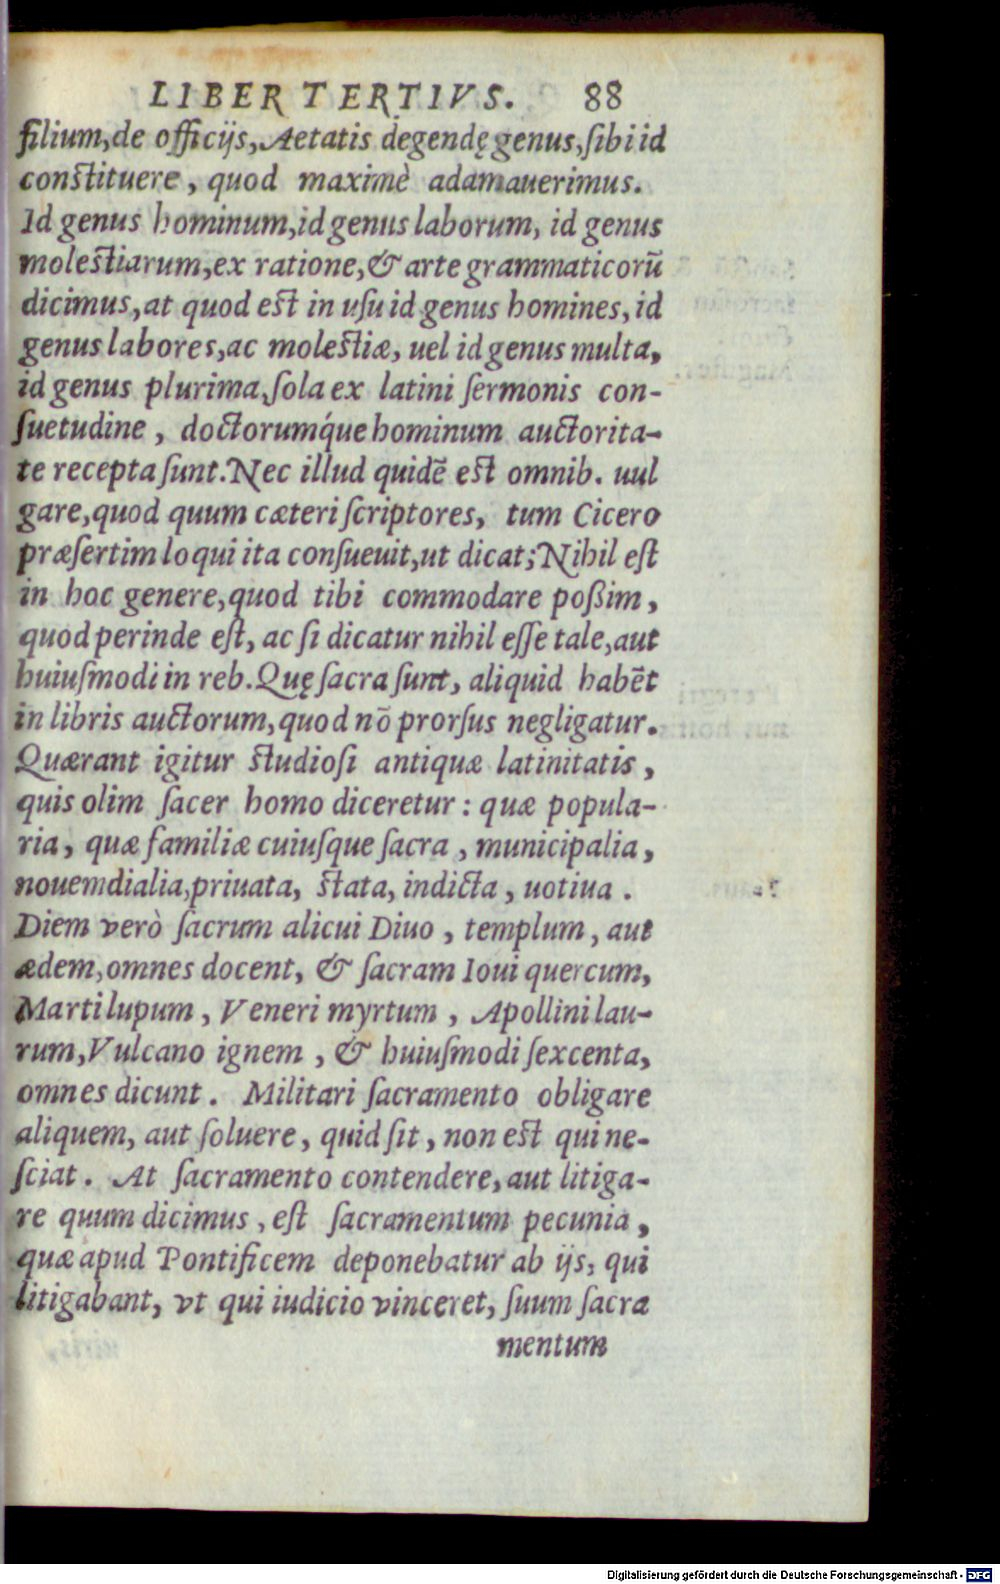 LIBER TERTIVS. 88
filium, de officijs, Aetatis degendę genus, ſibi id
conſtituere, quod maximè adamauerimus.
Id genus hominum, id genus laborum, id genus
moleſtiarum, ex ratione, & arte grammaticorũ
dicimus, at quod eſt in uſu id genus homines, id
genus labores, ac moleſtiæ, uel id genus multa,
id genus plurima, ſola ex latini ſermonis con-
ſuetudine, doctorumq́ue hominum auctorita-
te recepta ſunt. Nec illud quidẽ eſt omnib. uul
gare, quod quum cæteri ſcriptores, tum Cicero
præſertim loqui ita conſueuit, ut dicat; Nihil eſt
in hoc genere, quod tibi commodare poßim,
quod perinde eſt, ac ſi dicatur nihil eſſe tale, aut
huiuſmodi in reb. Quę ſacra ſunt, aliquid habẽt
in libris auctorum, quod nõ prorſus negligatur.
Quærant igitur ſtudioſi antiquæ latinitatis,
quis olim ſacer homo diceretur: quæ popula-
ria, quæ familiæ cuiuſque ſacra, municipalia,
nouemdialia, priuata, ſtata, indicta, uotiua.
Diem verò ſacrum alicui Diuo, templum, aut
ædem, omnes docent, & ſacram Ioui quercum,
Marti lupum, Veneri myrtum, Apollini lau-
rum, Vulcano ignem, & huiuſmodi ſexcenta,
omnes dicunt. Militari ſacramento obligare
aliquem, aut ſoluere, quid ſit, non eſt qui ne-
ſciat. At ſacramento contendere, aut litiga-
re quum dicimus, eſt ſacramentum pecunia,
quæ apud Pontificem deponebatur ab ijs, qui
litigabant, vt qui iudicio vinceret, ſuum ſacra
mentum
Digitalisierung gefördert durch die Deutsche Forschungsgemeinschaft - DFG